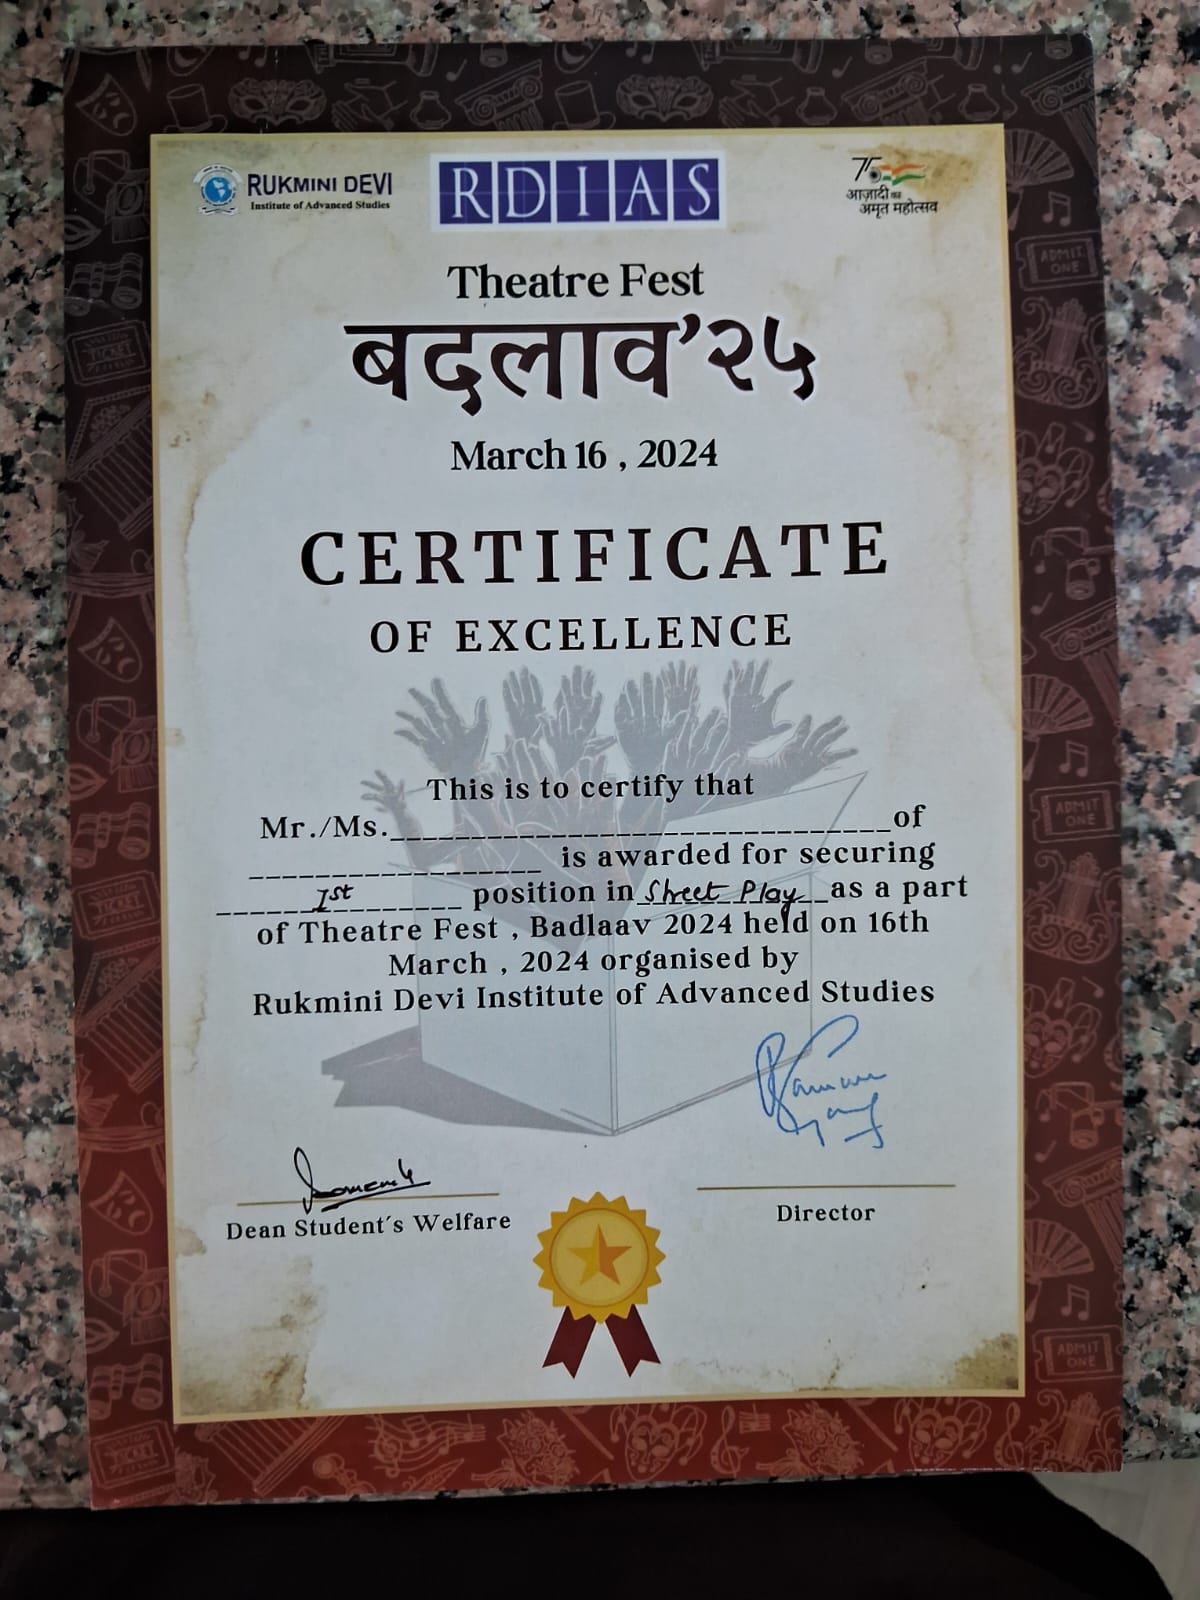 RUKMINI DEVI
Institute of Advanced Studies
RDIAS
75
आज़ादी का
अमृत महोत्सव
Theatre Fest
बदलाव’२५
March 16 , 2024
CERTIFICATE
OF EXCELLENCE
This is to certify that
Mr./Ms.________________________________of
___________________ is awarded for securing
______1st_________ position in Street Play__as a part
of Theatre Fest , Badlaav 2024 held on 16th
March , 2024 organised by
Rukmini Devi Institute of Advanced Studies
Dean Student's Welfare
Director
ADMIT
ONE
TICKET
ADMIT
ONE
TICKET
ADMIT
ONE
TICKET